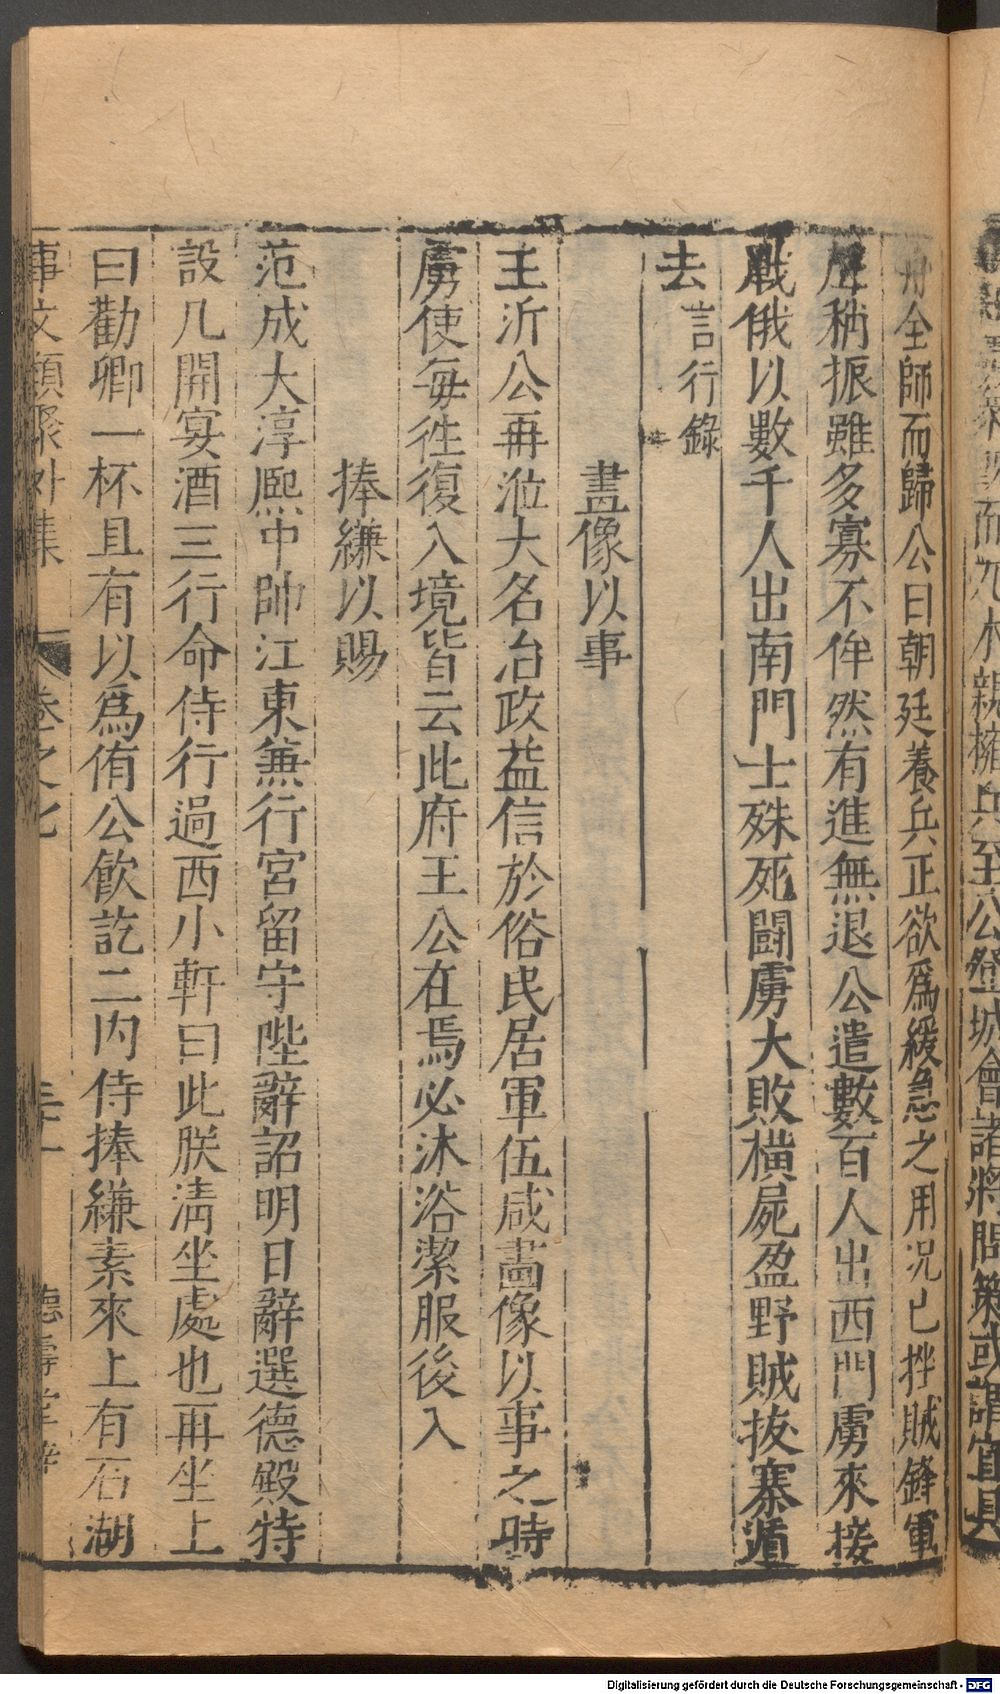 舟全師而歸公曰朝廷養兵正欲爲緩急之用况已挫賊鋒軍
聲稍振雖多寡不侔然有進無退公遣數百人出西門虜來接
戰俄以數千人出南門士殊死鬪虜大敗橫屍盈野賊拔寨遁
去言行錄
畫像以事
王沂公再涖大名治政益信於俗民居軍伍咸畫像以事之時
虜使每徃復入境皆云此府王公在焉必沐浴潔服後入
捧縑以賜
范成大淳熈中帥江東兼行宮留守陛辭詔明日辭選德殿特
設几開宴酒三行命侍行過西小軒曰此朕淸坐處也再坐上
曰勸卿一杯且有以爲侑公飲訖二内侍捧縑素來上有石湖
事文類聚外集 卷之七 德壽堂梓
親擁兵至公登城會諸將問策或謂宜具
Digitalisierung gefördert durch die Deutsche Forschungsgemeinschaft - DFG